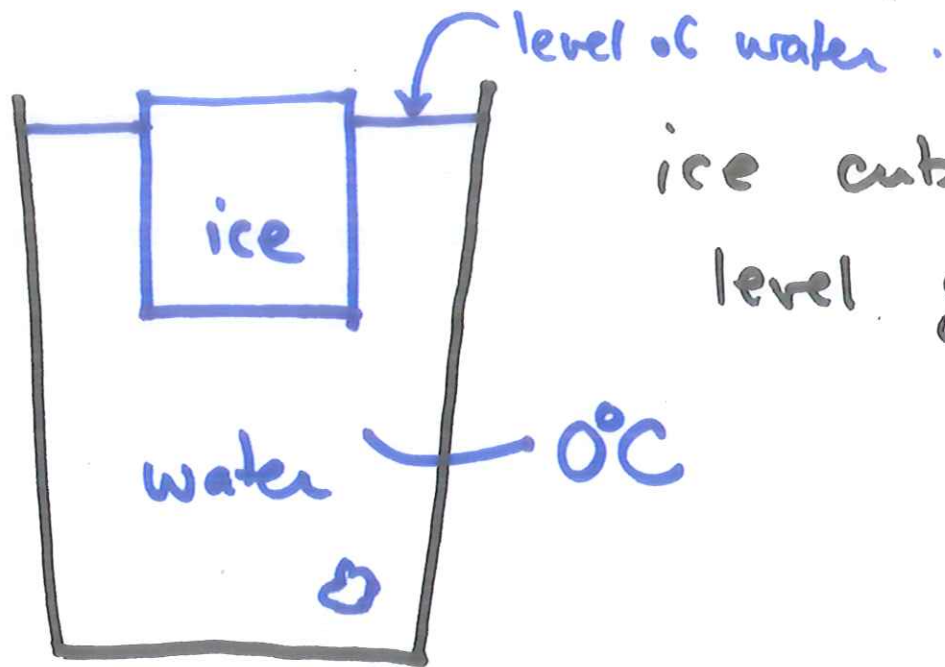 level of water .
ice
level
ice
0°C
water